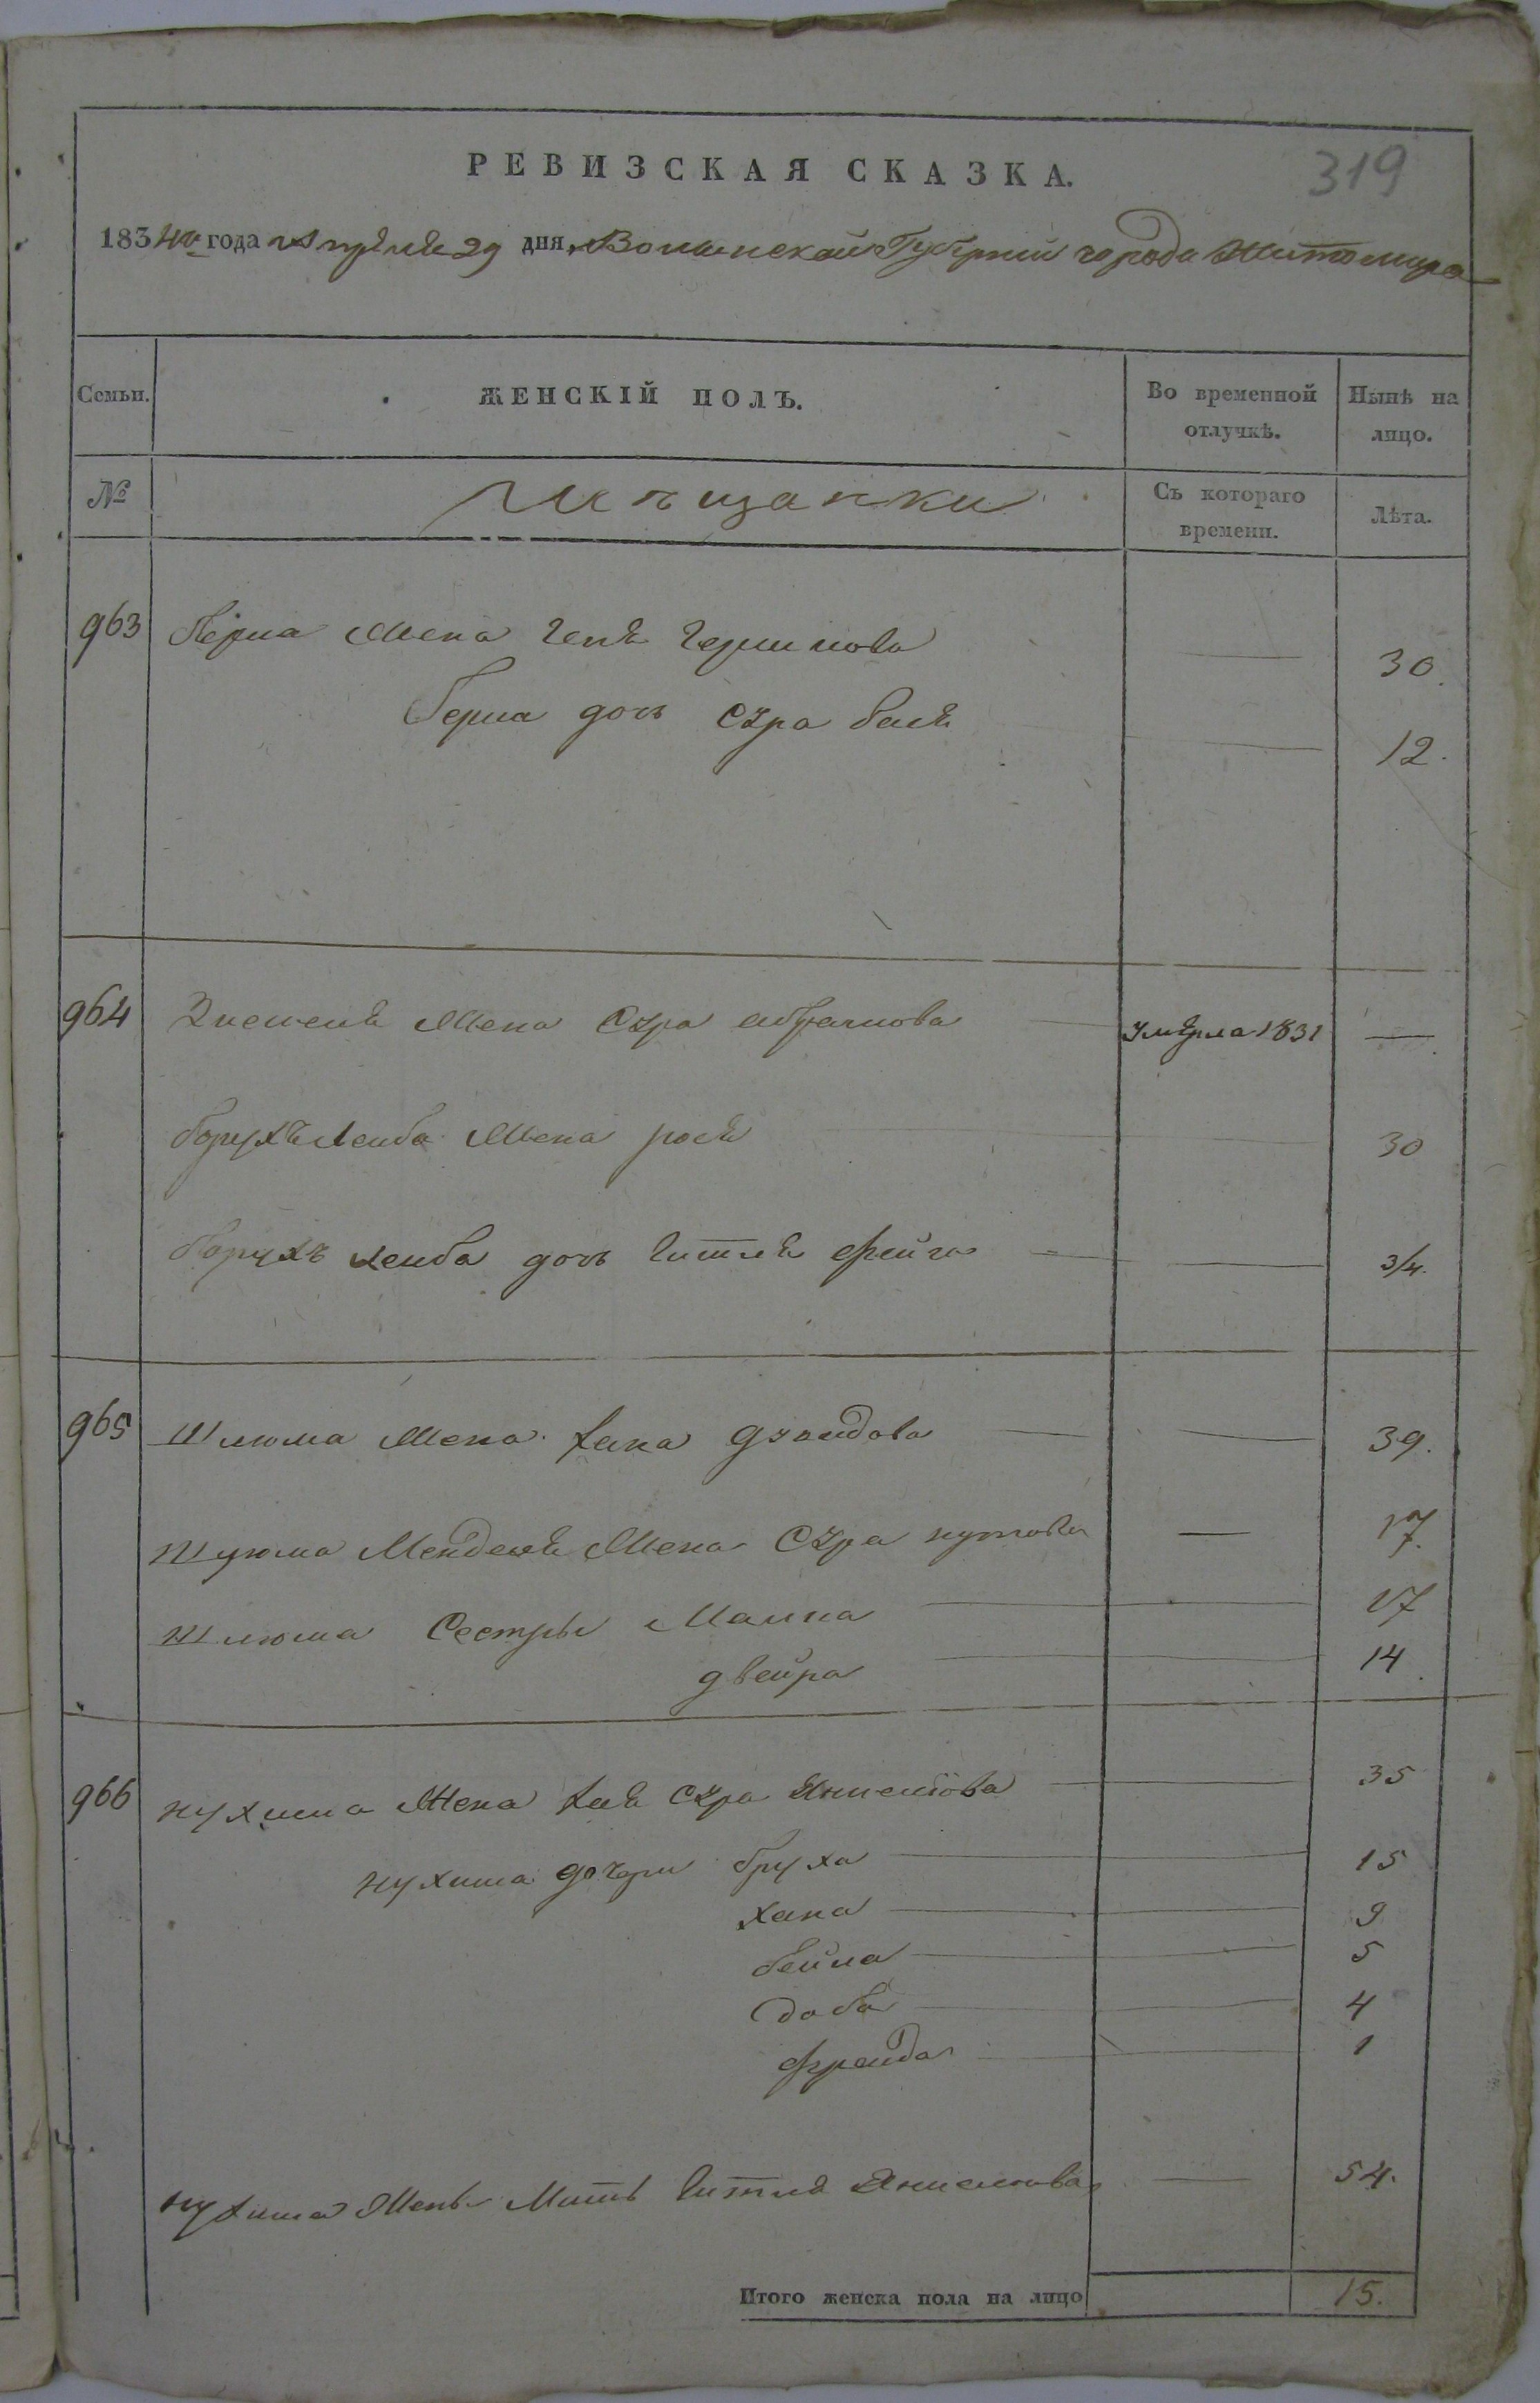 319
РЕВИЗСКАЯ СКАЗКА.
1834го года Апреля 29 дня, Волынской Губернии города Житомира
Семьи.
ЖЕНСКІЙ ПОЛЪ.
Во временной отлучкѣ.
Нынѣ на лицо.
№
Мѣщанки
Съ котораго времени.
Лѣта.
963 берка Жена Геня 30.
берка дочь Сура бася 12.
964 Жена Сура абрамова умерла 1831 —
борухъ леиба Жена рося 30
борухъ леиба дочь гитля фейга 3/4.
965 Шлюма Жена хана 39.
Шлюма Менделя Жена Сура нутова 17.
Шлюма Сестры Малка 17
двейра 14
966 нухима Жена хая Сура Янкелiова 35
нухима дочери бруха 15
хана 9
бейла 5
доба 4
фрейда 1
нухима Жены Мать гитля Янкелiова 54.
Итого женска пола на лицо 15.